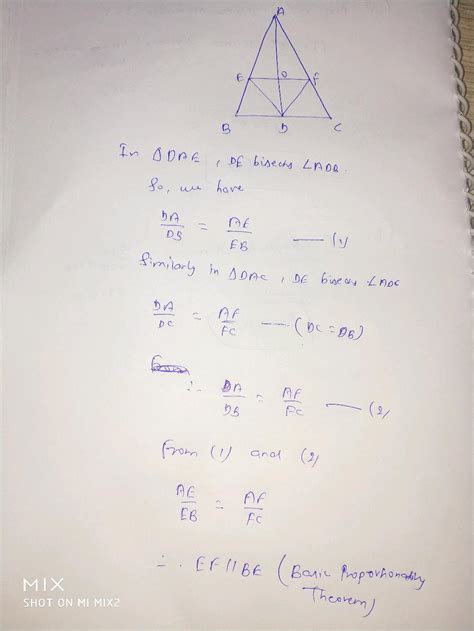 A
E O F
B D C
In ΔDAE , DE bisects ∠ADB.
So, we have
DA/DB = AE/EB —— (1)
Similarly in ΔDAC , DE bisects ∠ADC
DA/DC = AF/FC —— (DC = DB)
∴ DA/DB = AF/FC —— (2)
From (1) and (2)
AE/EB = AF/FC
∴ EF || BE (Basic Proportionality
Theorem)
MIX
SHOT ON MI MIX2